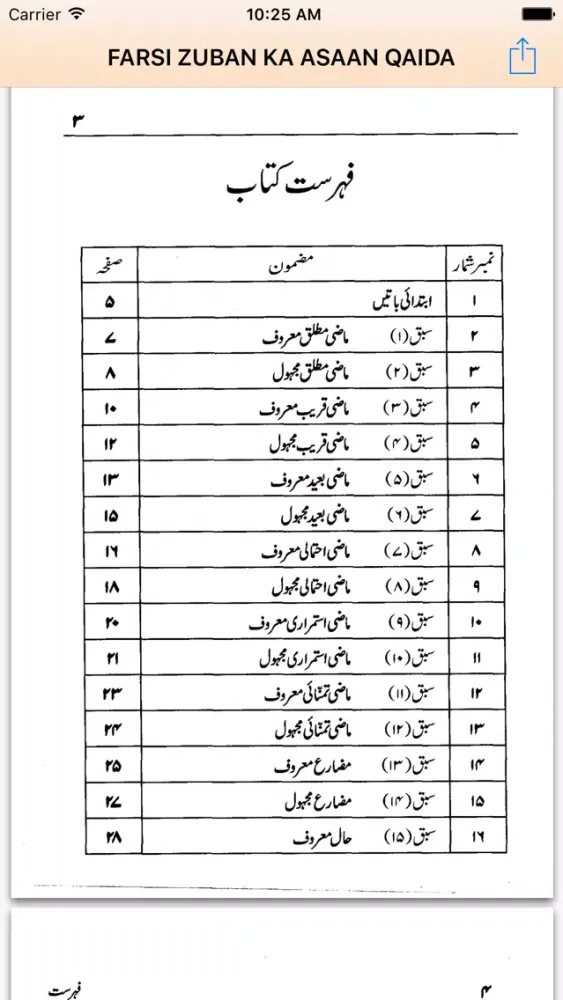 Carrier 10:25 AM
FARSI ZUBAN KA ASAAN QAIDA
۳
فہرست کتاب
نمبر شمار مضمون صفحہ
۱ ابتدائی باتیں ۵
۲ سبق (۱) ماضی مطلق معروف ۷
۳ سبق (۲) ماضی مطلق مجہول ۸
۴ سبق (۳) ماضی قریب معروف ۱۰
۵ سبق (۴) ماضی قریب مجہول ۱۲
۶ سبق (۵) ماضی بعید معروف ۱۳
۷ سبق (۶) ماضی بعید مجہول ۱۵
۸ سبق (۷) ماضی احتمالی معروف ۱۶
۹ سبق (۸) ماضی احتمالی مجہول ۱۸
۱۰ سبق (۹) ماضی استمراری معروف ۲۰
۱۱ سبق (۱۰) ماضی استمراری مجہول ۲۱
۱۲ سبق (۱۱) ماضی تمنّائی معروف ۲۳
۱۳ سبق (۱۲) ماضی تمنّائی مجہول ۲۴
۱۴ سبق (۱۳) مضارع معروف ۲۵
۱۵ سبق (۱۴) مضارع مجہول ۲۷
۱۶ سبق (۱۵) حال معروف ۲۸
۴ فہرست